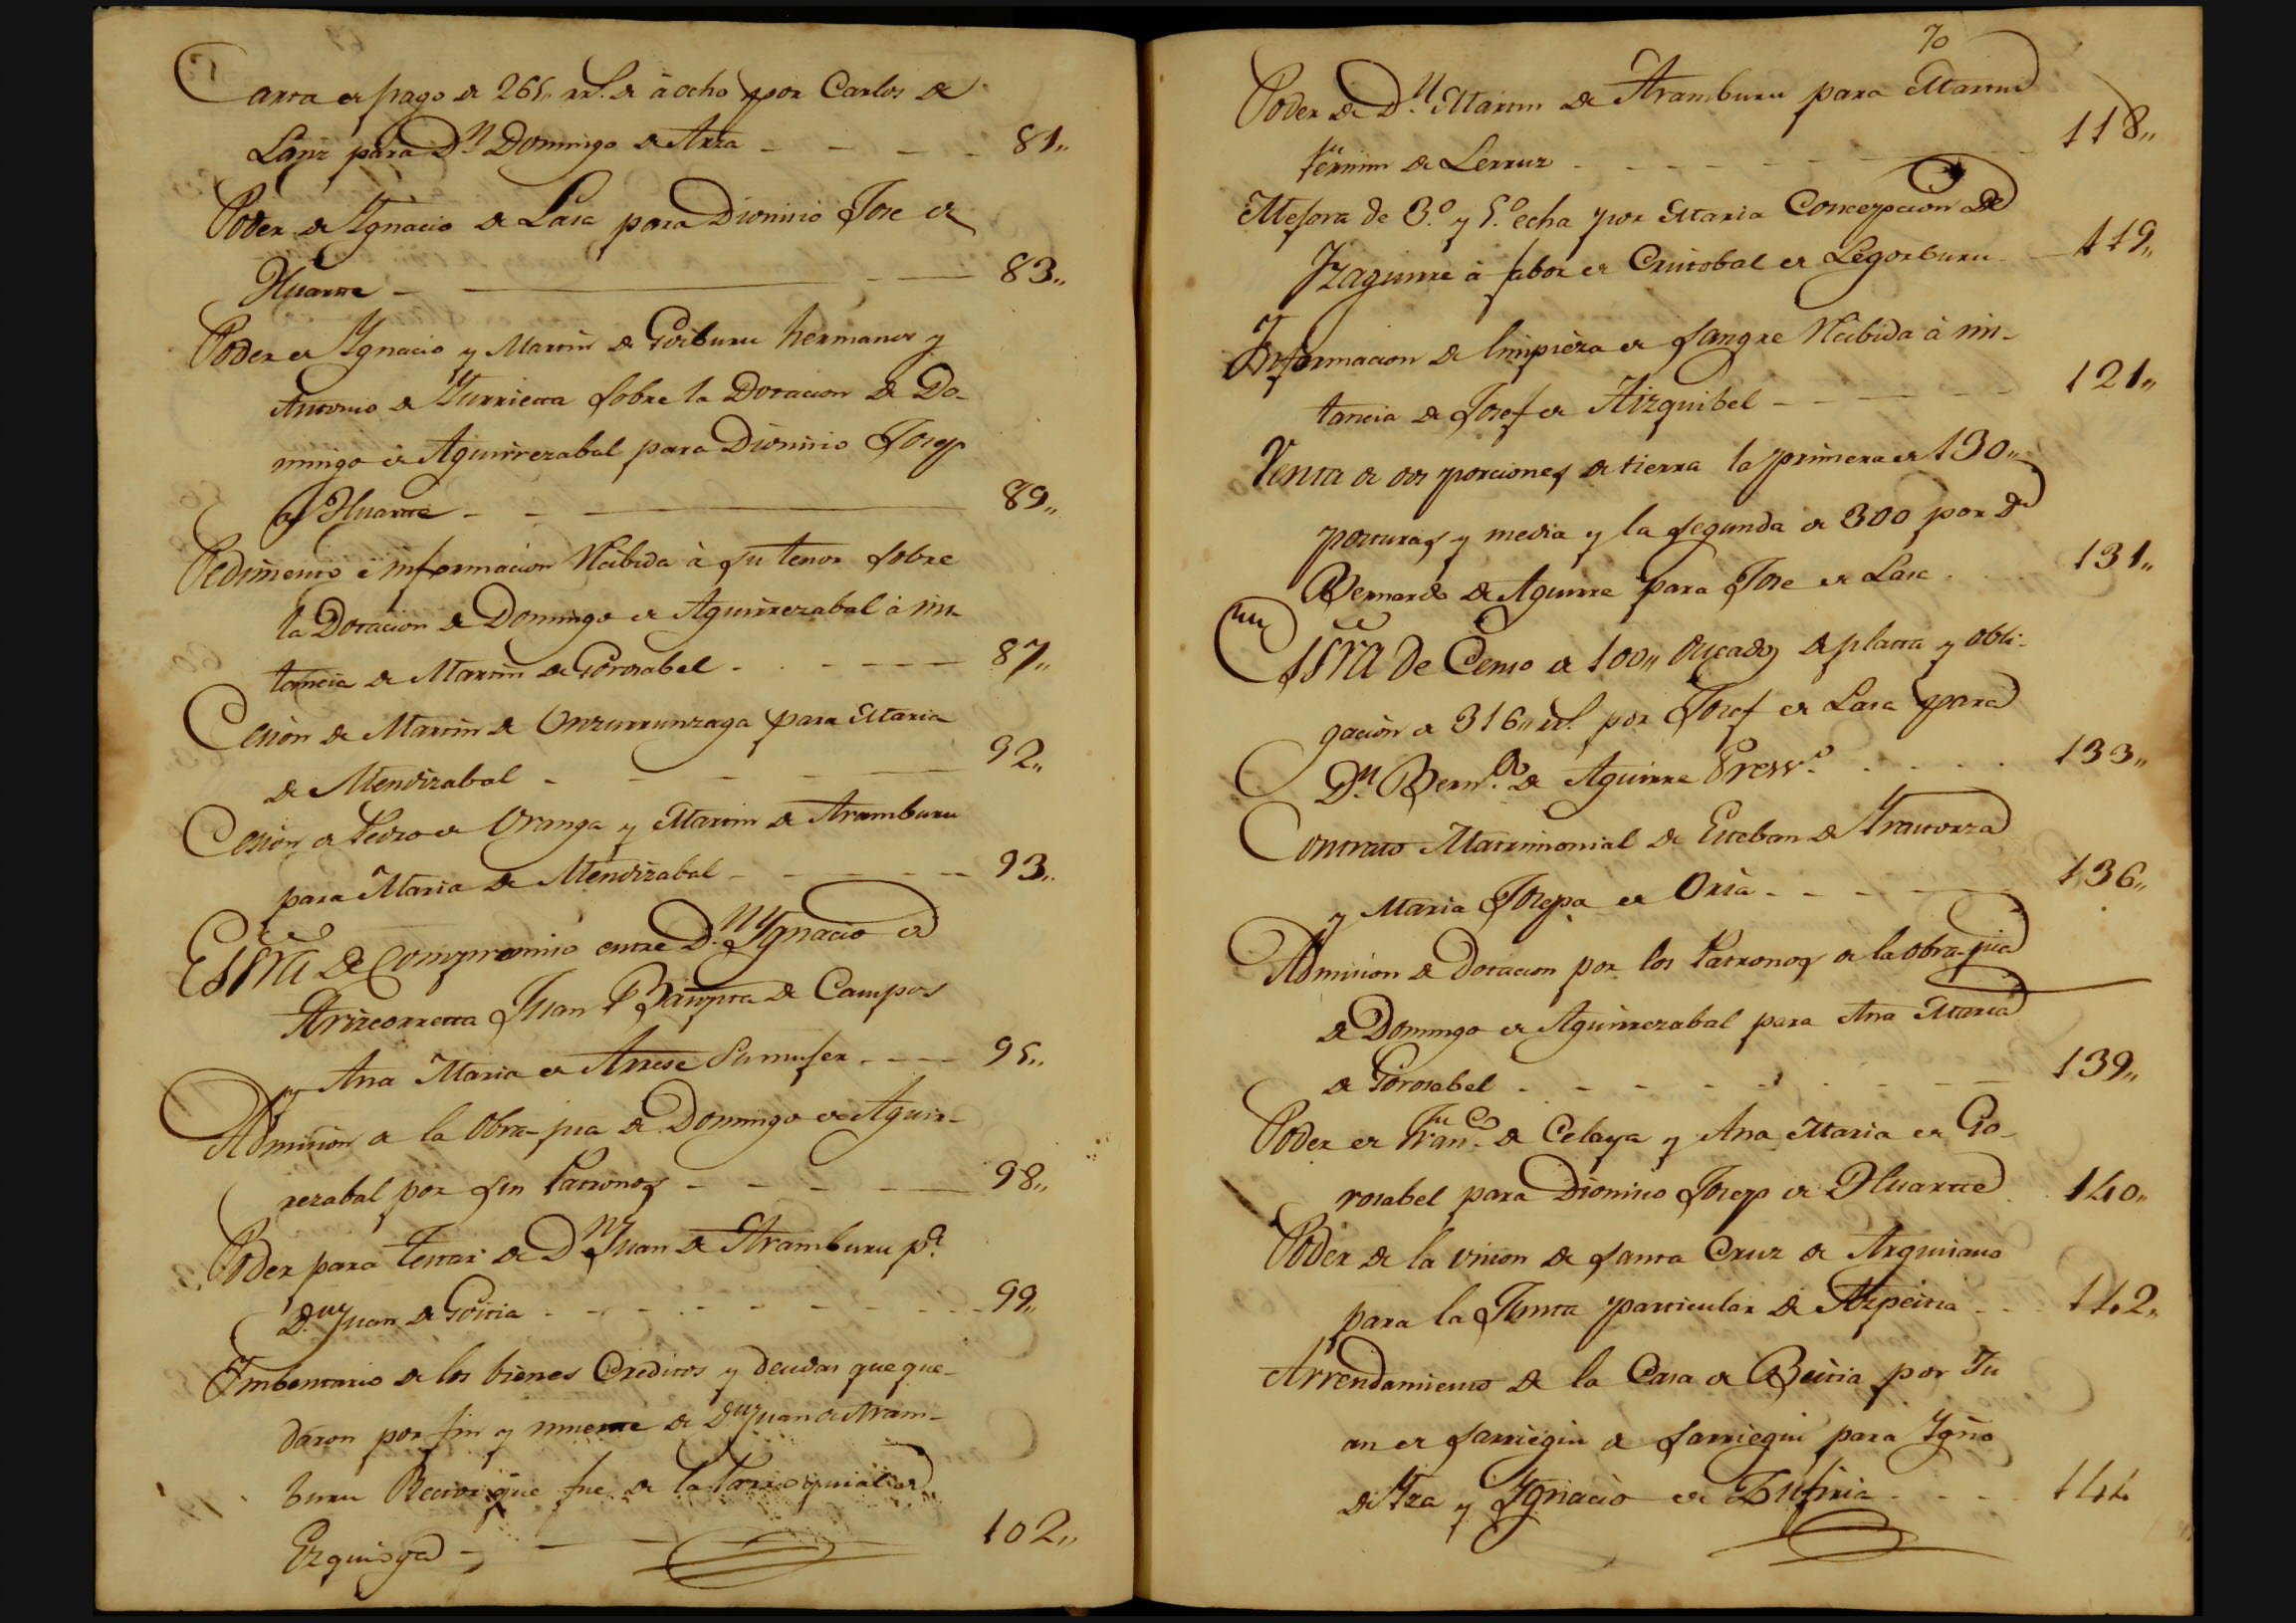 Carta de pago de 265,, rr.s de à ocho por Carlos de
Lanz para D.n Domingo de Arza - - - - 81,,
Poder de Ygnacio de Lasa para Dionisio Jose de
Huarte - 83,,
Poder de Ygnacio y Martin de Goiburu hermanos y
Antonio de Yturrieta sobre la Dotacion de Do-
mingo de Aguirrezabal para Dionisio Josep
de Huarte - - 89,,
Pedimento è informacion Rêcibida à su tenor sobre
la Dotacion de Domingo de Aguirrezabal à ins-
tancia de Martin de Gorosabel - - - - - 87,,
Cesion de Martin de Unzurrunzaga para Maria
de Mendizabal - - - - 92,,
Cesion de Pedro de Oranga y Martin de Aramburu
para Maria de Mendizabal - - - - - 93,,
Essra de Compromiso entre D.n Ygnacio de
Arizcorreta Juan Bauptta de Campos
y Ana Maria de Arrese su muger - - - 95,,
Admision a la obra-pia de Domingo de Aguir-
rezabal por sus Patronos - - - - 98,,
Poder para testar de D.n Juan de Aramburu p.a
D.n Juan de Goitia - - - - - - - - 99,,
Imbentario de los bienes Creditos y deudas que que-
daron por fin y muerte de D.n Juan de Aram-
buru Rector que fue de la Parroquial de
Ezquioga - 102,,
70
Poder de D.n Martin de Aramburu para Martin
Fermin de Lerruz - - - - - 118,,
Mejora de 3.o y 5.o echa por Maria Concepcion de
Yzaguirre à fabor de Cristobal de Legorburu - 119,,
Informacion de limpieza de sangre Rêcibida à ins-
tancia de Josef de Aizquibel - - - - - 121,,
Venta de dos porciones de tierra la primera de 130,,
posturas y media y la segunda de 300 por D.n
Bernardo de Aguirre para Jose de Lasa - 131,,
Essra de Censo de 100,, ducados de platta y obli-
gacion de 316,, rr.s por Josef de Lasa para
D.n Bern.do de Aguirre Presv.o - - - - 133,,
Contrato Matrimonial de Esteban de Yraitorza
y Maria Josepa de Oria - - - - 136,,
Admision de dotacion por los Patronos de la obra-pia
de Domingo de Aguirrezabal para Ana Maria
de Gorosabel - - - - - - - 139,,
Poder de Fran.co de Celaya y Ana Maria de Go-
rosabel para Dionisio Josep de Huarte 140,,
Poder de la union de santa Cruz de Arguisano
para la Junta particular de Azpeitia - - 142,,
Arrendamiento de la Casa de Beitia por Ju
an de sarriegui de sarriegui para Ygño
de Aza y Ygnacio de Zufiria - - - - 144